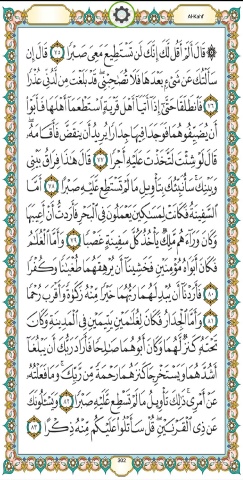 Al-Kahf
۞ قَالَ أَلَمْ أَقُل لَّكَ إِنَّكَ لَن تَسْتَطِيعَ مَعِيَ صَبْرًا ٧٥ قَالَ إِن
سَأَلْتُكَ عَن شَيْءٍ بَعْدَهَا فَلَا تُصَاحِبْنِي قَدْ بَلَغْتَ مِن لَّدُنِّي عُذْرًا
٧٦ فَانطَلَقَا حَتَّىٰ إِذَا أَتَيَا أَهْلَ قَرْيَةٍ اسْتَطْعَمَا أَهْلَهَا فَأَبَوْا
أَن يُضَيِّفُوهُمَا فَوَجَدَا فِيهَا جِدَارًا يُرِيدُ أَن يَنقَضَّ فَأَقَامَهُ
قَالَ لَوْ شِئْتَ لَتَّخَذْتَ عَلَيْهِ أَجْرًا ٧٧ قَالَ هَٰذَا فِرَاقُ بَيْنِي
وَبَيْنِكَ سَأُنَبِّئُكَ بِتَأْوِيلِ مَا لَمْ تَسْتَطِع عَّلَيْهِ صَبْرًا ٧٨ أَمَّا
السَّفِينَةُ فَكَانَتْ لِمَسَاكِينَ يَعْمَلُونَ فِي الْبَحْرِ فَأَرَدتُّ أَنْ أَعِيبَهَا
وَكَانَ وَرَاءَهُم مَّلِكٌ يَأْخُذُ كُلَّ سَفِينَةٍ غَصْبًا ٧٩ وَأَمَّا الْغُلَامُ
فَكَانَ أَبَوَاهُ مُؤْمِنَيْنِ فَخَشِينَا أَن يُرْهِقَهُمَا طُغْيَانًا وَكُفْرًا
٨٠ فَأَرَدْنَا أَن يُبْدِلَهُمَا رَبُّهُمَا خَيْرًا مِّنْهُ زَكَاةً وَأَقْرَبَ رُحْمًا
٨١ وَأَمَّا الْجِدَارُ فَكَانَ لِغُلَامَيْنِ يَتِيمَيْنِ فِي الْمَدِينَةِ وَكَانَ
تَحْتَهُ كَنزٌ لَّهُمَا وَكَانَ أَبُوهُمَا صَالِحًا فَأَرَادَ رَبُّكَ أَن يَبْلُغَا
أَشُدَّهُمَا وَيَسْتَخْرِجَا كَنزَهُمَا رَحْمَةً مِّن رَّبِّكَ وَمَا فَعَلْتُهُ
عَنْ أَمْرِي ذَٰلِكَ تَأْوِيلُ مَا لَمْ تَسْطِع عَّلَيْهِ صَبْرًا ٨٢ وَيَسْأَلُونَكَ
عَن ذِي الْقَرْنَيْنِ قُلْ سَأَتْلُو عَلَيْكُم مِّنْهُ ذِكْرًا ٨٣
302